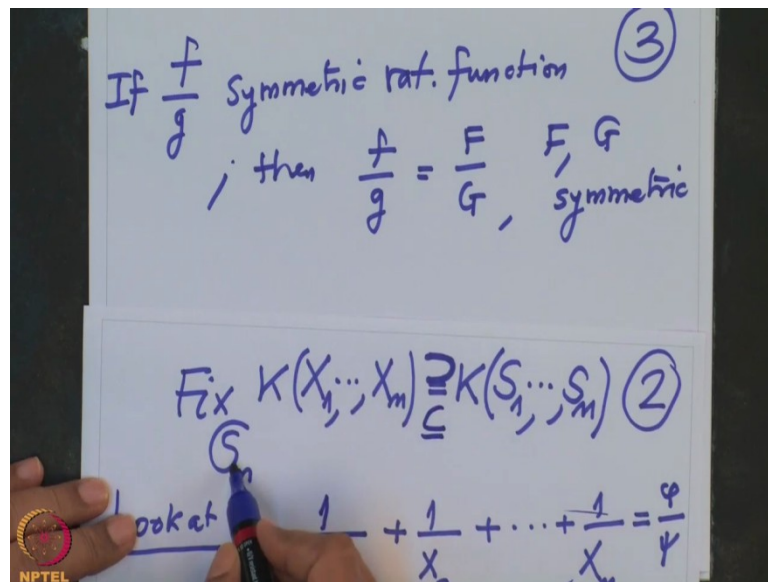 ③
If f/g symmetric rat. function
; then f/g = F/G , F, G
symmetric
Fix K(X₁,...,Xₙ) ⊇ K(S₁,...,Sₙ) ②
⊆
Sₙ
Look at 1 + 1/X + ... + 1/Xₙ = φ/ψ
NPTEL